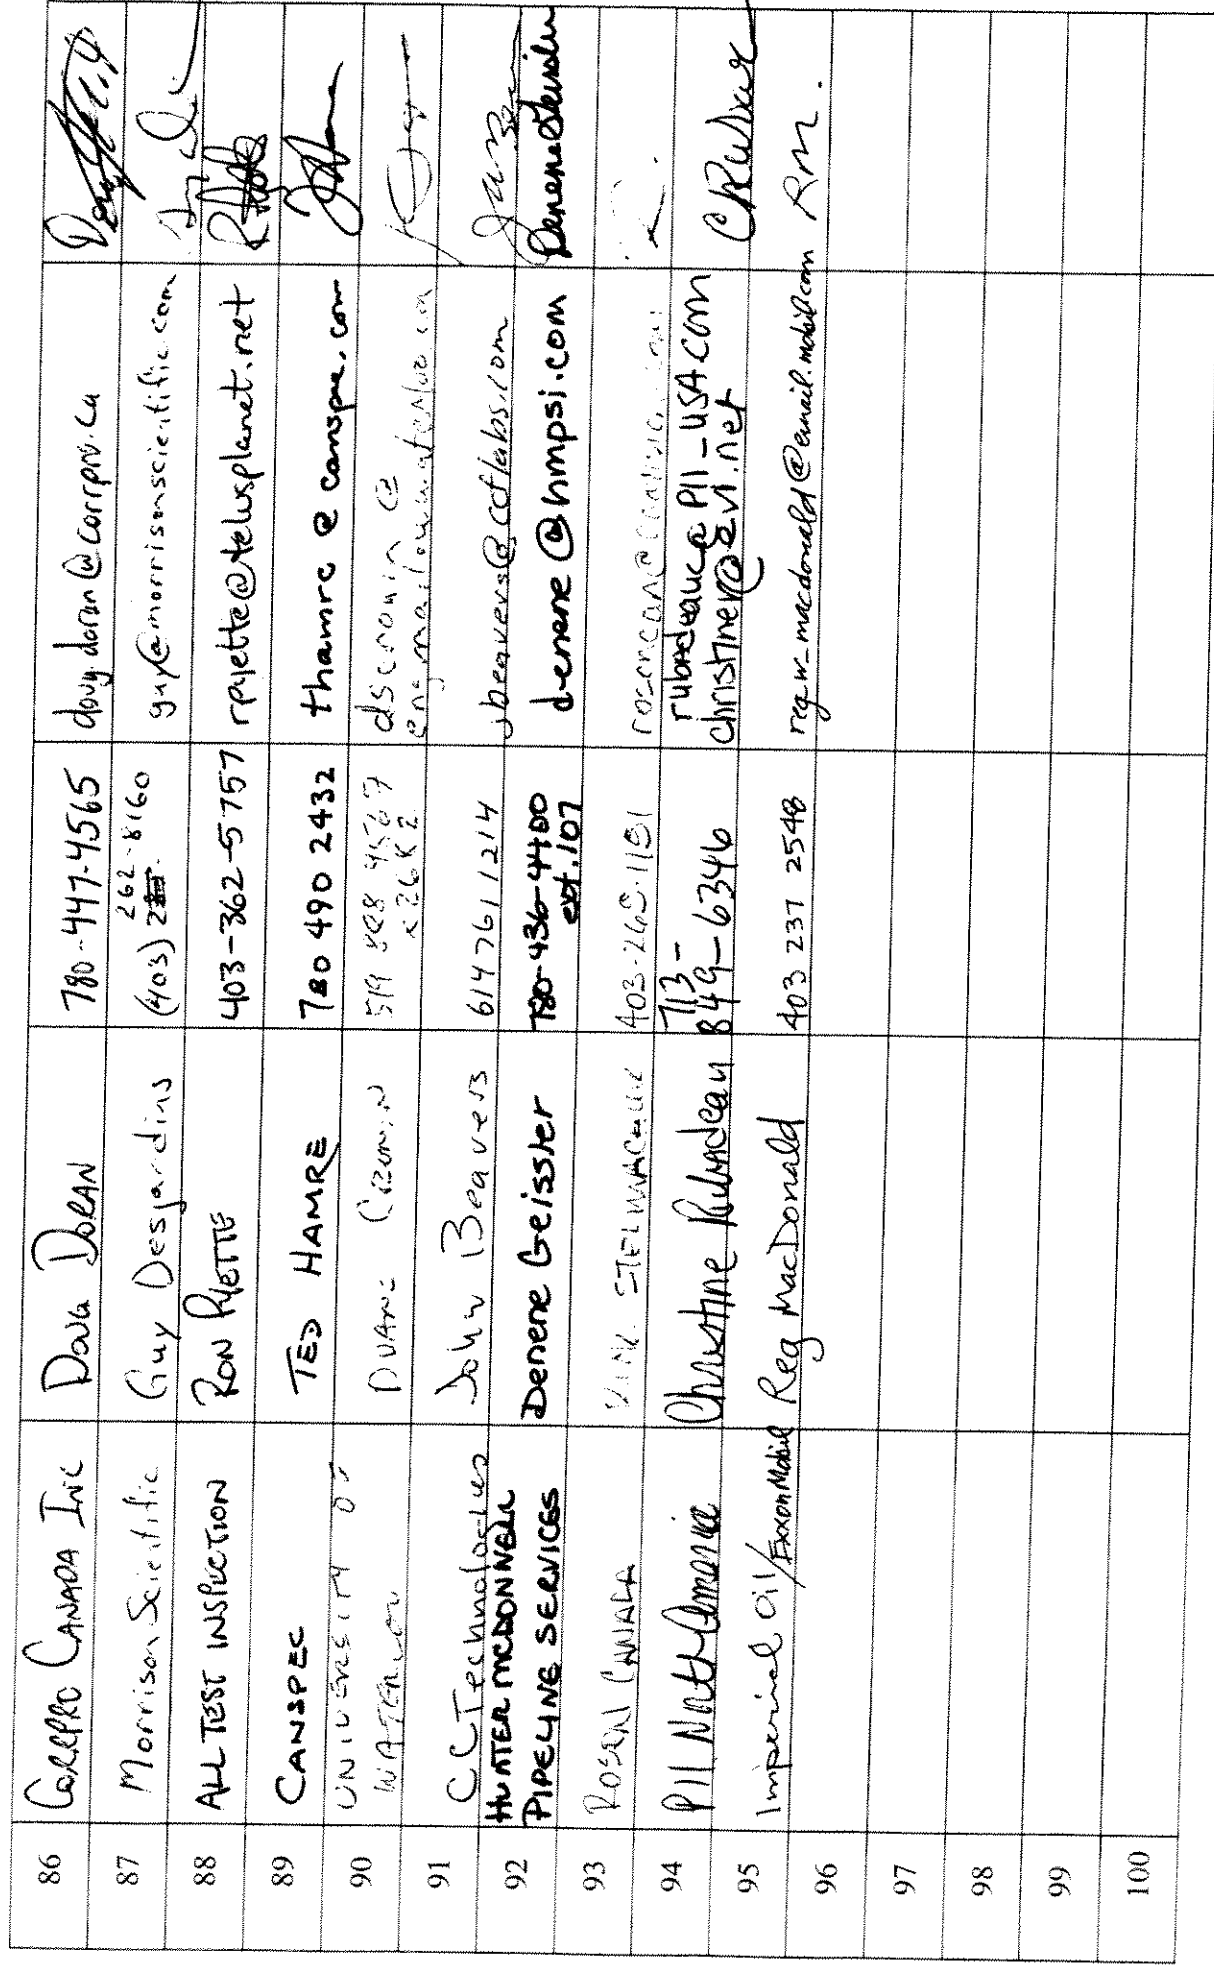 86 CORRPRO CANADA INC DOUG DORAN 780-447-4565 doug.doran@corrpro.ca
87 Morrison Scientific Guy Desjardins (403) 262-8160 guy@morrisonscientific.com
88 ALLTEST INSPECTION RON PYETTE 403-362-5757 rpyette@telusplanet.net
89 CANSPEC TED HAMRE 780 490 2432 thamre @ canspec.com
90 UNIVERSITY OF WATERLOO DUANE CRONIN 519 888 4567 x26K2 dscronin @ engmail.uwaterloo.ca
91 CC Technologies John Beavers 614 761 1214 jbeavers@cctlabs.com
92 HUNTER MCDONNELL PIPELINE SERVICES Denene Geissler 780-436-4400 ext.107 denene@hmpsi.com Denene Geissler
93 ROSEN CANADA STELMACHUK 403-269-1191
94 PII North America Christine Rubadeau 713-849-6346 rubadeauc@PII-USA.com christiner@evi.net CRubadeau
95 Imperial Oil/ExxonMobil Reg MacDonald 403 237 2548 reg.w.macdonald@email.mobil.com RM.
96
97
98
99
100